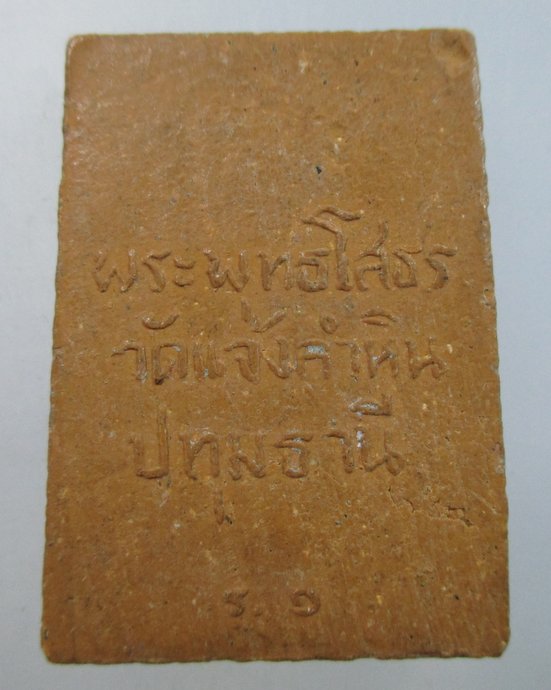 พระพุทธโสธร
วัดแจ้งคำหิน
ปทุมธานี
ร. ๑